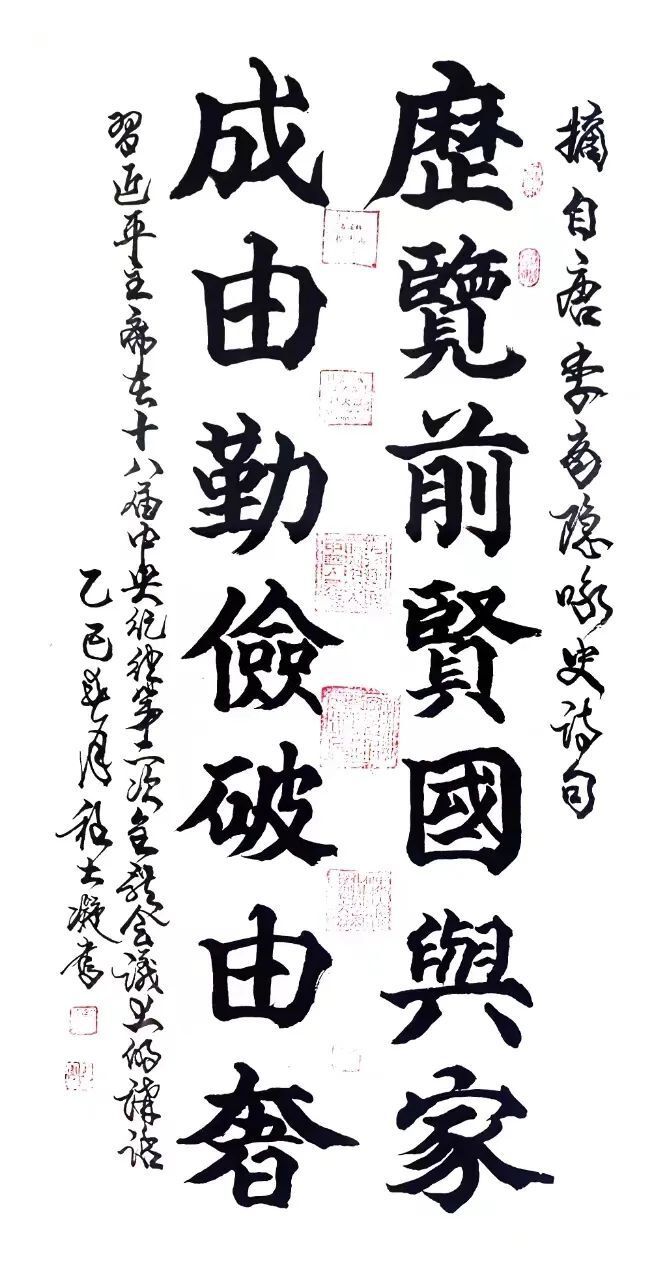 摘自唐李商隐咏史诗句
歷覽前賢國與家
成由勤儉破由奢
習近平主席在十八届中央纪律第二次全體会議上的講話
乙巳年月程士凝書